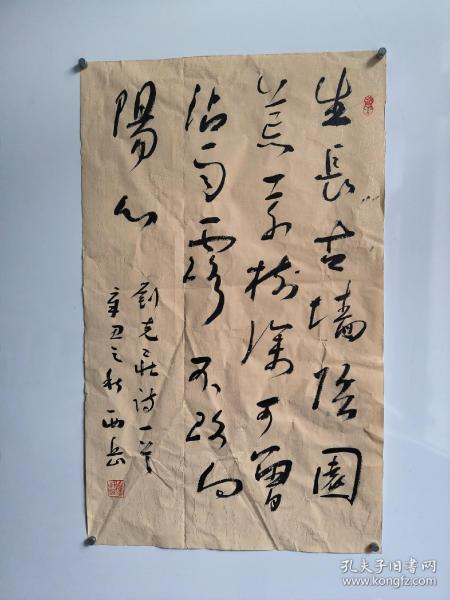 生長古墙陰園
荒草樹深可曾
沾雨露不改向
陽心
劉克莊诗一首
辛丑之秋西岳
孔夫子旧书网
www.kongfz.com